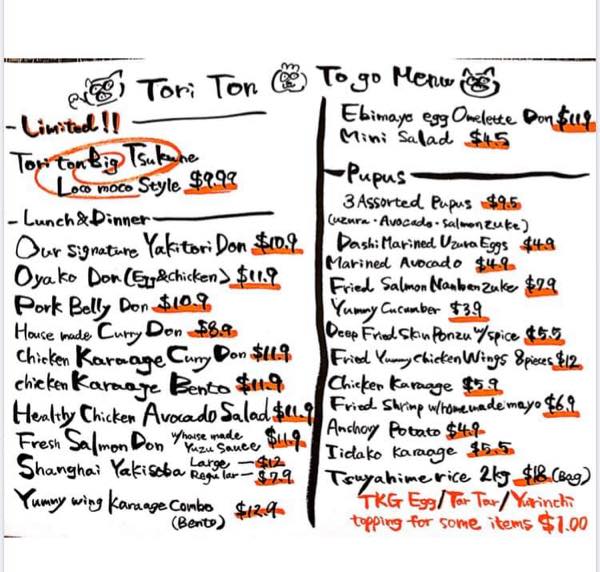 Tori Ton
To go Menu
- Limited!!
Tori ton Big Tsukune
Loco moco Style $9.99
- Lunch & Dinner
Our Signature Yakitori Don $10.9
Oyako Don (Egg & chicken) $11.9
Pork Belly Don $10.9
House made Curry Don $8.9
Chicken Karaage Curry Don $11.9
chicken Karaage Bento $11.9
Healthy Chicken Avocado Salad $11.9
Fresh Salmon Don w/house made Yuzu Sauce $11.9
Shanghai Yakisoba Large - $12
Regular - $7.9
Yummy wing Karaage Combo
(Bento) $12.9
Ebimayo egg Omelette Don $11.9
Mini Salad $4.5
- Pupus
3 Assorted Pupus $9.5
(uzura・Avocado・salmon zuke)
Dashi Marined Uzura Eggs $4.9
Marined Avocado $4.9
Fried Salmon Nanbenzuke $7.9
Yummy Cucumber $3.9
Deep Fried Skin Ponzu w/spice $5.5
Fried Yummy Chicken Wings 8 pieces $12
Chicken Karaage $5.9
Fried Shrimp w/homemade mayo $6.9
Anchovy Potato $4.9
Iidako karaage $5.5
Tsuyahime rice 2kg $18 (Bag)
TKG Egg/Tar Tar/Yurinchi
topping for some items $1.00